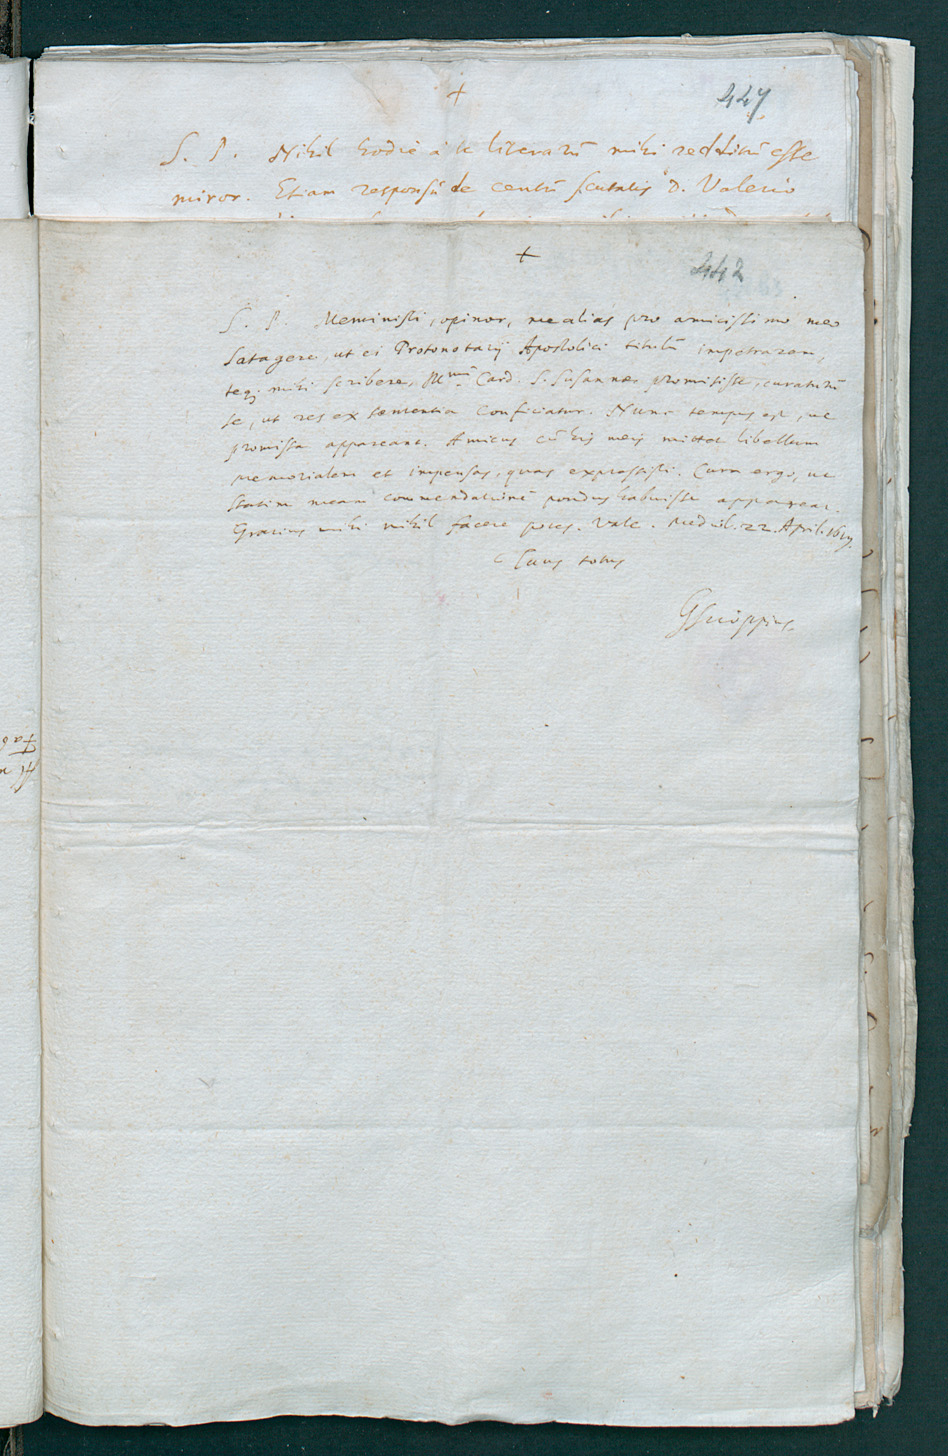 +
447
S. P. Nihil hodie à te literarũ mihi redditũ esse
miror. Etiam responsũ de centũ scutatis D. Valerio
+
442
S. P. Meministi, opinor, me aliàs pro amicissimo meo
satagere, ut ei Protonotarij Apostolici titulũ impetrarem,
teq; mihi scribere, Illmũ Card. S. Susannæ promisisse, curaturũ
se, ut res ex sententia conficiatur. Nunc tempus est, ut
promissa appareant. Amicus cũ his meis mittet libellum
memorialem et impensas, quas expressisti. Cura ergo, ut
statim meam commendationẽ pondus habuisse appareat.
Gratius mihi nihil facere potes. Vale. Mediol. 22. April. 1619.
Tuus totus
GScioppius.